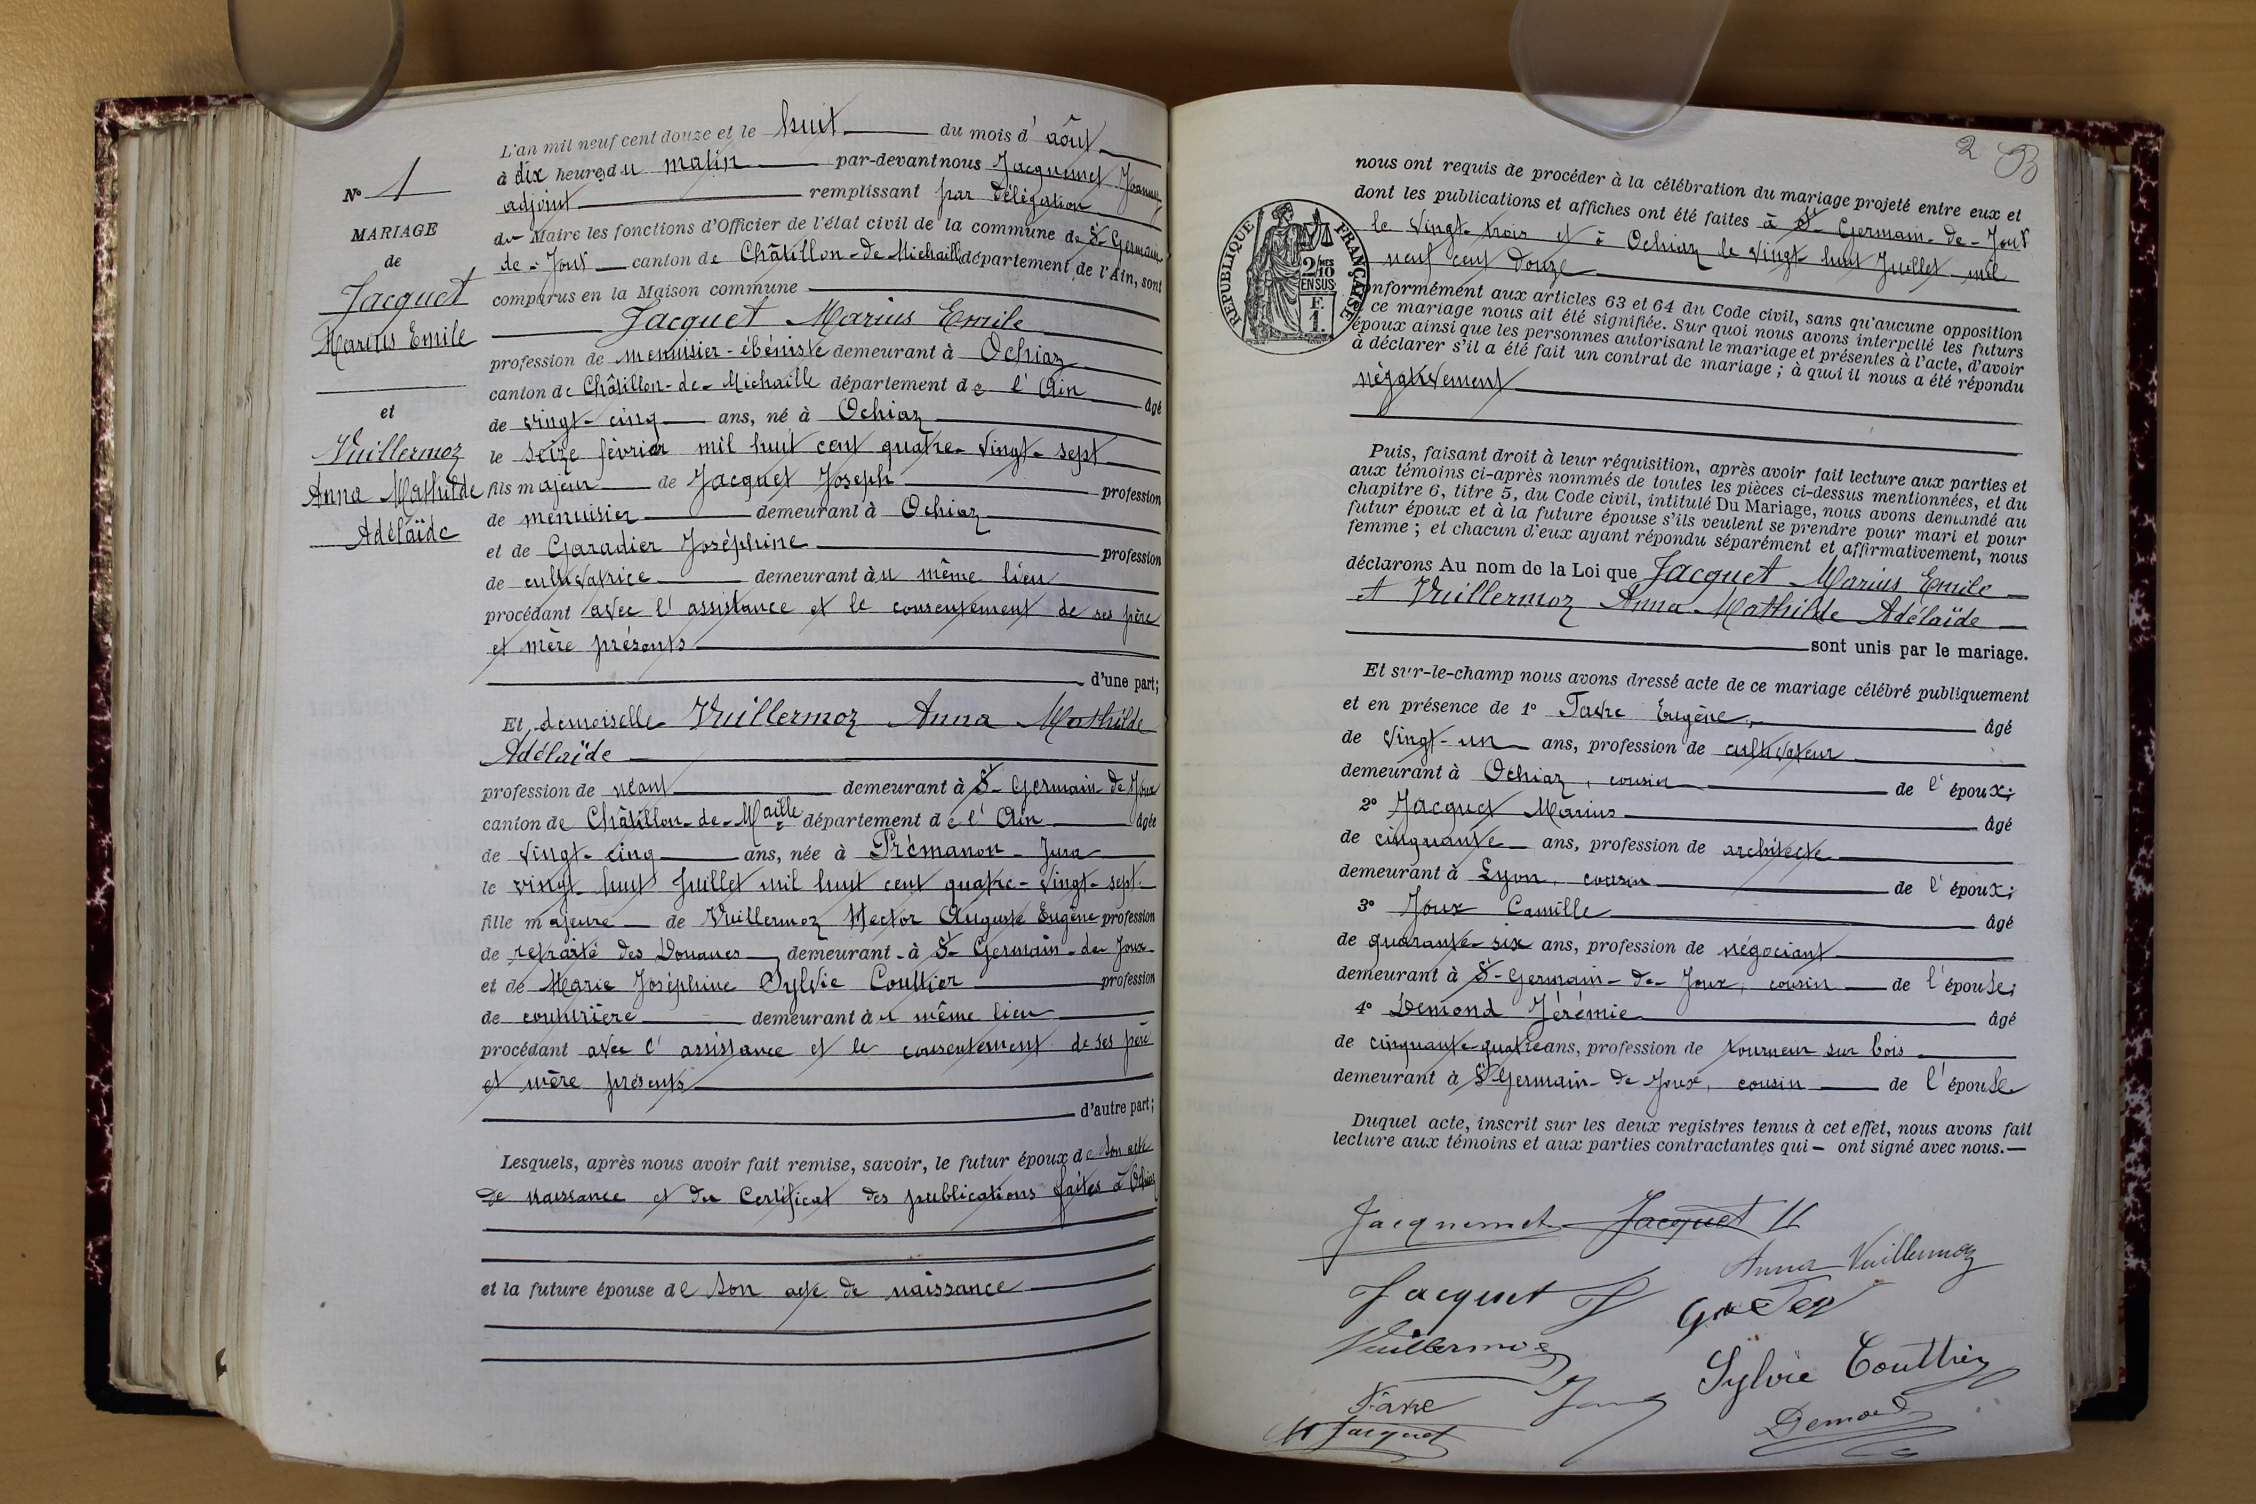 N° 1
MARIAGE
de
Jacquet
Marius Emile
et
Vuillermoz
Anna Mathilde
Adélaïde
L'an mil neuf cent douze et le huit du mois d' août
à dix heures du matin par-devant nous Jacquemet Joanny
adjoint remplissant par délégation
du Maire les fonctions d'Officier de l'état civil de la commune de St Germain
de - Joux canton de Châtillon-de-Michaille département de l'Ain, sont
comparus en la Maison commune
Jacquet Marius Emile
profession de menuisier-ébéniste demeurant à Ochiaz
canton de Châtillon-de-Michaille département de l'Ain âgé
de vingt-cinq ans, né à Ochiaz
le seize février mil huit cent quatre-vingt-sept
fils majeur de Jacquet Joseph profession
de menuisier demeurant à Ochiaz
et de Garadier Joséphine profession
de cultivatrice demeurant au même lieu
procédant avec l'assistance et le consentement de ses père
et mère présents
d'une part;
Et demoiselle Vuillermoz Anna Mathilde
Adélaïde
profession de néant demeurant à St Germain de Joux
canton de Châtillon-de-Maille département de l'Ain âgée
de vingt-cinq ans, née à Prémanon - Jura
le vingt huit Juillet mil huit cent quatre-vingt-sept
fille majeure de Vuillermoz Hector Auguste Eugène profession
de retraité des Douanes demeurant à St Germain-de Joux
et de Marie Joséphine Sylvie Couttier profession
de couturière demeurant au même lieu
procédant avec l'assistance et le consentement de ses père
et mère présents
d'autre part;
Lesquels, après nous avoir fait remise, savoir, le futur époux de son acte
de naissance et du Certificat des publications faites à Ochiaz
et la future épouse de son acte de naissance
2
nous ont requis de procéder à la célébration du mariage projeté entre eux et
dont les publications et affiches ont été faites à St Germain-de-Joux
le vingt-trois et à Ochiaz le vingt huit Juillet mil
neuf cent douze
RÉPUBLIQUE FRANÇAISE
2/10 MES
EN SUS
F.
1.
onformément aux articles 63 et 64 du Code civil, sans qu'aucune opposition
ce mariage nous ait été signifiée. Sur quoi nous avons interpellé les futurs
époux ainsi que les personnes autorisant le mariage et présentes à l'acte, d'avoir
à déclarer s'il a été fait un contrat de mariage; à quoi il nous a été répondu
négativement
Puis, faisant droit à leur réquisition, après avoir fait lecture aux parties et
aux témoins ci-après nommés de toutes les pièces ci-dessus mentionnées, et du
chapitre 6, titre 5, du Code civil, intitulé Du Mariage, nous avons demandé au
futur époux et à la future épouse s'ils veulent se prendre pour mari et pour
femme; et chacun d'eux ayant répondu séparément et affirmativement, nous
déclarons Au nom de la Loi que Jacquet Marius Emile
et Vuillermoz Anna Mathilde Adélaïde
sont unis par le mariage.
Et sur-le-champ nous avons dressé acte de ce mariage célébré publiquement
et en présence de 1° Favre Eugène, âgé
de vingt-un ans, profession de cultivateur
demeurant à Ochiaz, cousin de l'époux;
2° Jacquet Marius âgé
de cinquante ans, profession de architecte
demeurant à Lyon, cousin de l'époux;
3° Joux Camille âgé
de quarante-six ans, profession de négociant
demeurant à St-Germain-de-Joux, cousin de l'épouse;
4° Demond Jérémie âgé
de cinquante-quatre ans, profession de tourneur sur bois
demeurant à St Germain-de Joux, cousin de l'épouse
Duquel acte, inscrit sur les deux registres tenus à cet effet, nous avons fait
lecture aux témoins et aux parties contractantes qui - ont signé avec nous.
Jacquemet Jacquet M
Anna Vuillermoz
Jacquet J
Vuillermoz
Sylvie Couttier
Favre
M Jacquet
Demond